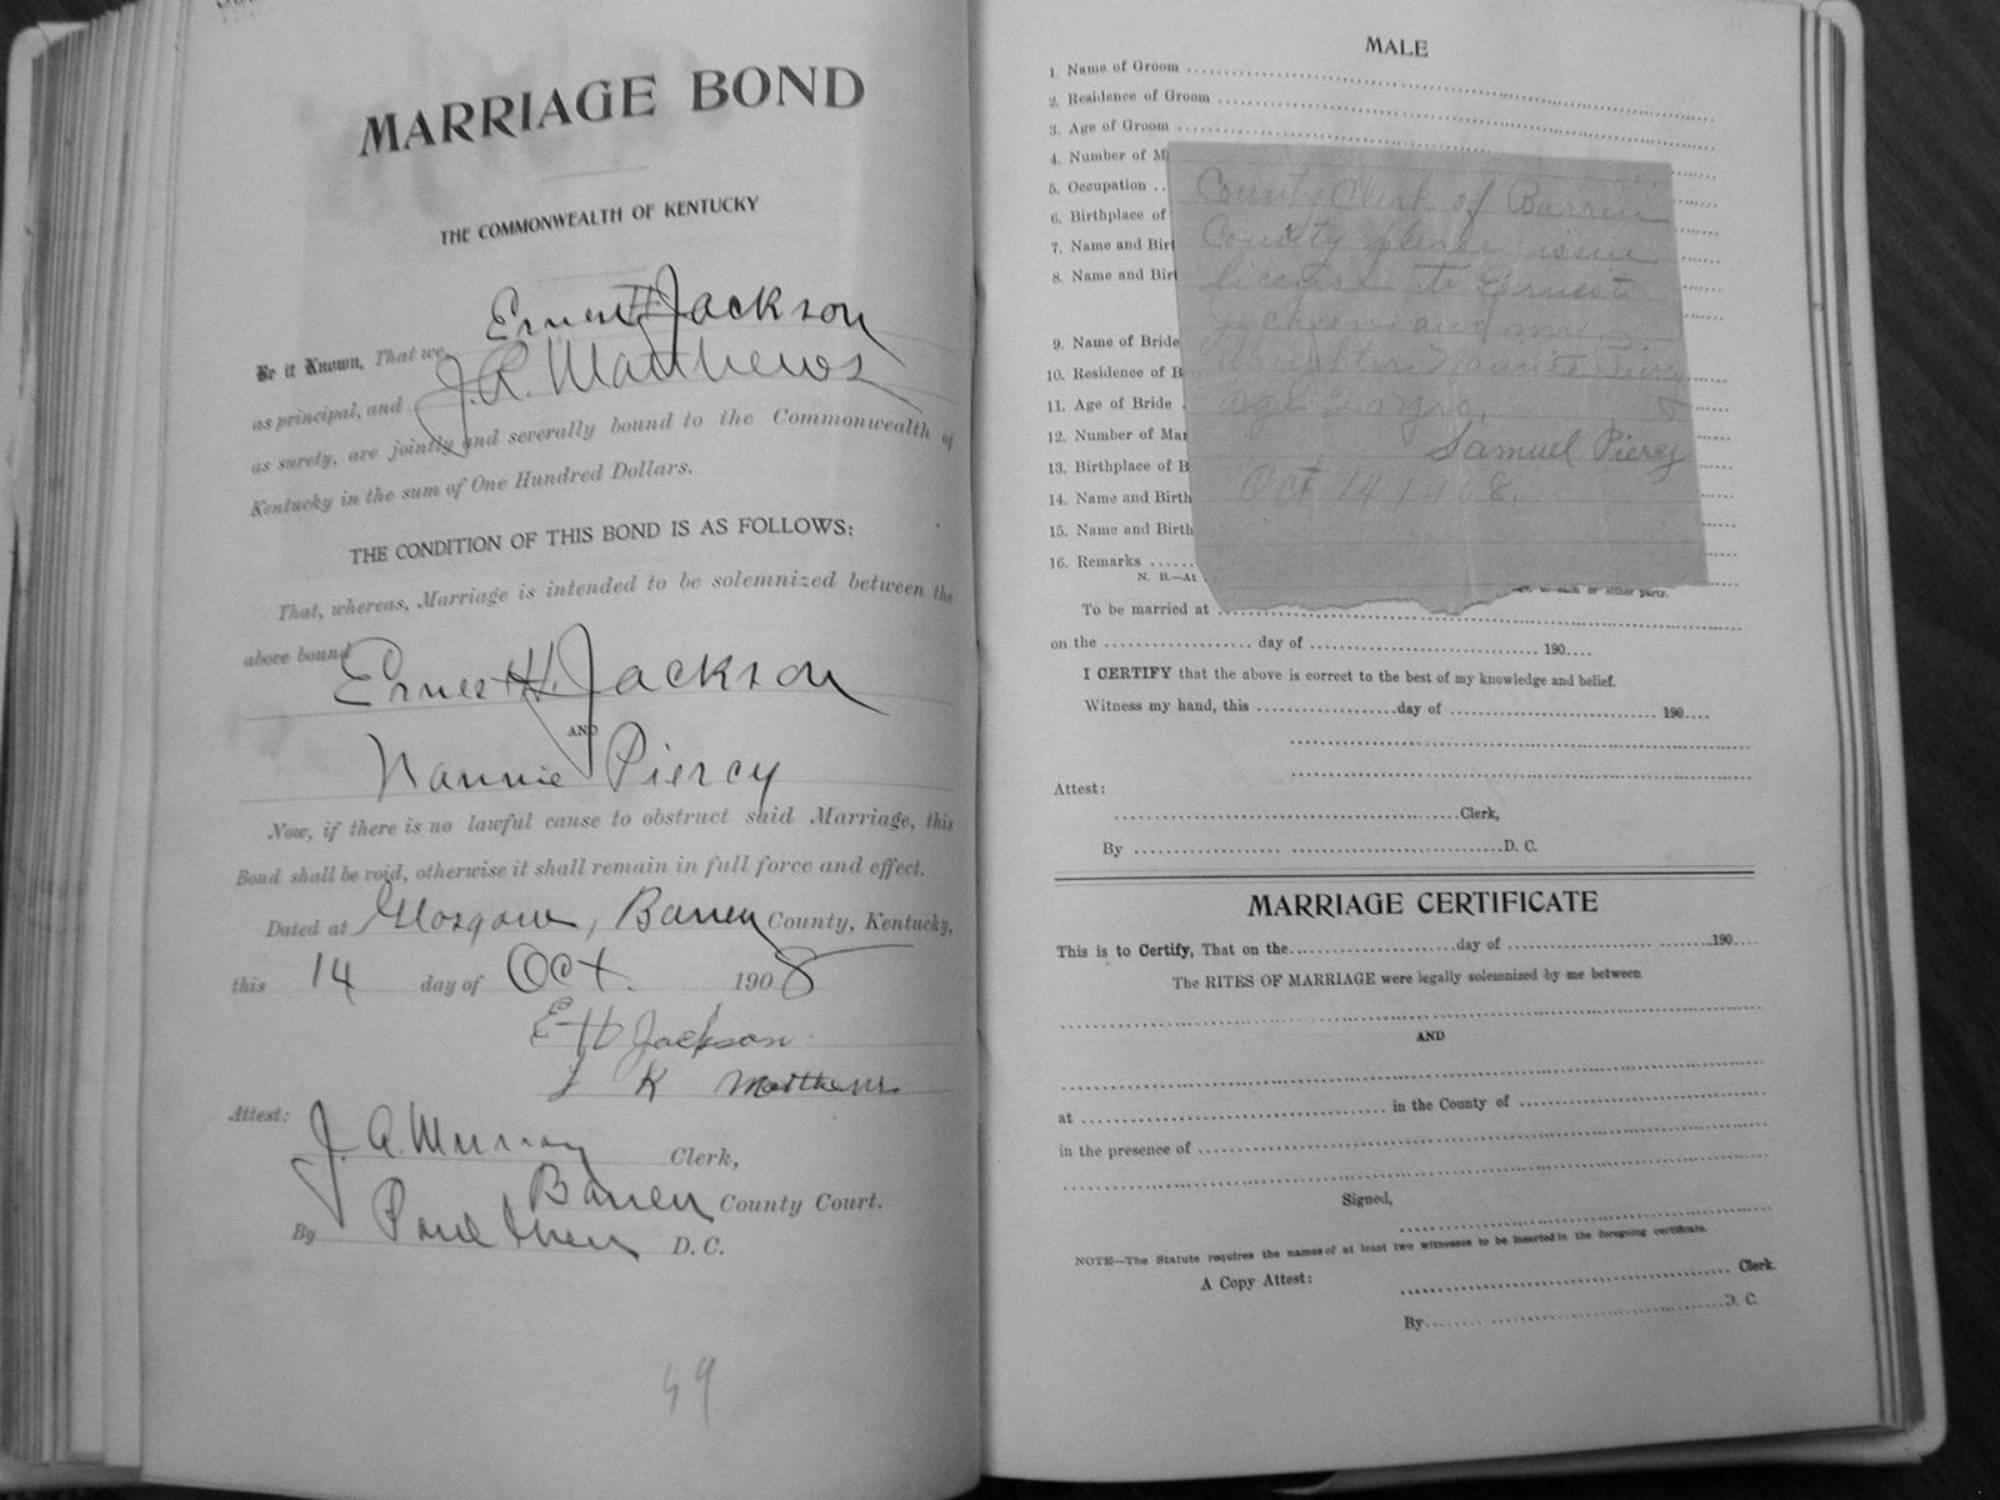 MARRIAGE BOND
THE COMMONWEALTH OF KENTUCKY
Be it Known, That we Ernest H. Jackson
as principal, and J. R. Matthews
as surety, are jointly and severally bound to the Commonwealth of
Kentucky in the sum of One Hundred Dollars.
THE CONDITION OF THIS BOND IS AS FOLLOWS:
That, whereas, Marriage is intended to be solemnized between the
above bound Ernest H. Jackson
AND
Nannie Piercy
Now, if there is no lawful cause to obstruct said Marriage, this
Bond shall be void, otherwise it shall remain in full force and effect.
Dated at Glasgow, Barren County, Kentucky,
this 14 day of Oct. 1908
E H Jackson
J R Matthews
Attest:
J. A. Murray Clerk,
Barren County Court.
By Paul D. C.
49
MALE
1. Name of Groom
2. Residence of Groom
3. Age of Groom
4. Number of M
5. Occupation
6. Birthplace of
7. Name and Birt
8. Name and Birt
9. Name of Bride
10. Residence of B
11. Age of Bride
12. Number of Mar
13. Birthplace of B
14. Name and Birth
15. Name and Birth
16. Remarks
N. B.—At
County Clerk of Barren
County please issue
license to Ernest
Jackson and my
daughter Nannie Piercy
age 20 yrs.
Samuel Piercy
Oct 14 1908.
to each or either party.
To be married at
on the day of 190
I CERTIFY that the above is correct to the best of my knowledge and belief.
Witness my hand, this day of 190
Attest:
Clerk,
By D. C.
MARRIAGE CERTIFICATE
This is to Certify, That on the day of 190
The RITES OF MARRIAGE were legally solemnized by me between
AND
at in the County of
in the presence of
Signed,
NOTE—The Statute requires the names of at least two witnesses to be inserted in the foregoing certificate.
A Copy Attest: Clerk.
By D. C.